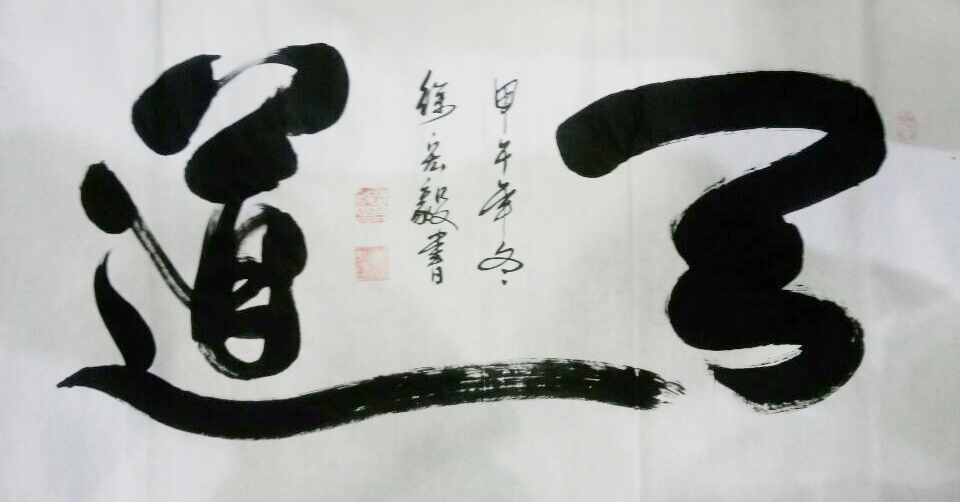 天道
甲午年冬
徐宏毅書